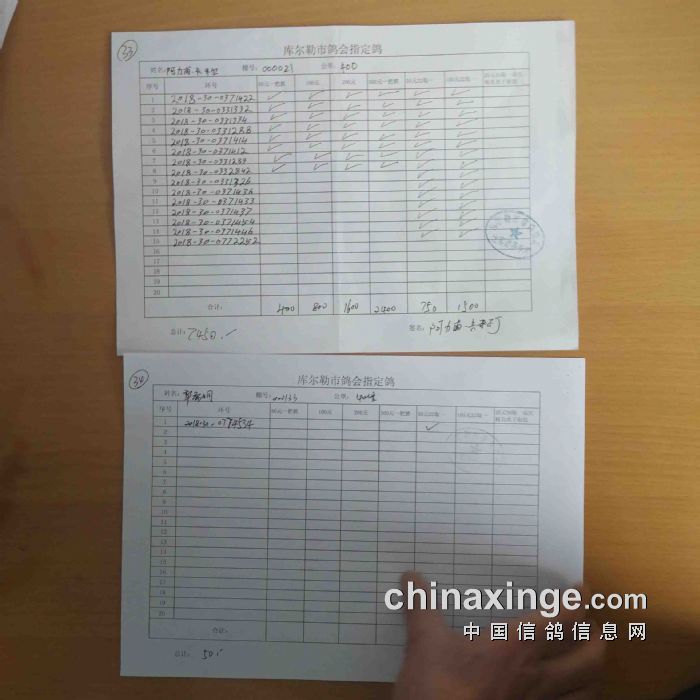 33
库尔勒市鸽会指定鸽
姓名: 棚号: 000021 公章: 400
序号 环号 50元一把抓 100元 200元 300元一把抓 50元三取一 100元三取一
1 2018-30-0371422 ✓ ✓ ✓ ✓ ✓ ✓
2 2018-30-0331332 ✓ ✓ ✓ ✓ ✓ ✓
3 2018-30-0331334 ✓ ✓ ✓ ✓ ✓ ✓
4 2018-30-0331288 ✓ ✓ ✓ ✓ ✓ ✓
5 2018-30-0371414 ✓ ✓ ✓ ✓ ✓ ✓
6 2018-30-0371412 ✓ ✓ ✓ ✓ ✓ ✓
7 2018-30-0331289 ✓ ✓ ✓ ✓ ✓ ✓
8 2018-30-0332842 ✓ ✓ ✓ ✓ ✓ ✓
9 2018-30-0331326 ✓ ✓
10 2018-30-0371436 ✓ ✓
11 2018-30-0371433 ✓ ✓
12 2018-30-0371437 ✓ ✓
13 2018-30-0371454 ✓ ✓
14 2018-30-0371446 ✓ ✓
15 2018-30-0772252 ✓ ✓
16
17
18
19
20
合计: 400 800 1600 2400 750 1500
总计: 7450.- 签名:
34
库尔勒市鸽会指定鸽
姓名: 棚号: 公章:
序号 环号 50元一把抓 100元 200元 300元一把抓 50元三取一 100元三取一
1 2018-30-0794534 ✓
2
3
4
5
6
7
8
9
10
11
12
13
14
15
16
17
18
19
20
合计:
总计: 50.-
chinaxinge.com
中国信鸽信息网